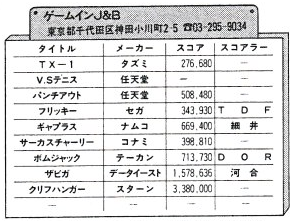 ゲームインJ&B
東京都千代田区神田小川町2-5 ☎03-295-9034
タイトル メーカー スコア スコアラー
TX-1 タズミ 276,680 —
V.Sテニス 任天堂 — —
パンチアウト 任天堂 508,480
フリッキー セガ 343,930 TDF
ギャプラス ナムコ 669,400 細井
サーカスチャーリー コナミ 398,810
ボムジャック テーカン 713,730 DOR
ザビガ データイースト 1,578,636 河合
クリフハンガー スターン 3,380,000 —
— — — —